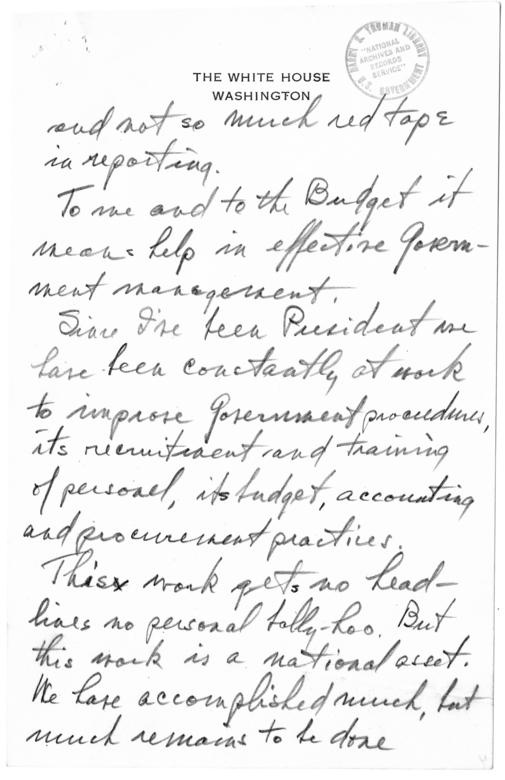 HARRY S. TRUMAN LIBRARY
"NATIONAL
ARCHIVES AND
RECORDS
SERVICE"
U.S. GOVERNMENT
THE WHITE HOUSE
WASHINGTON
and not so much red tape
in reporting.
To me and to the Budget it
means help in effective Govern-
ment management.
Since I've been President we
have been constantly at work
to improve Government procedures,
its recruitment and training
of personel, its budget, accounting
and procurement practices.
This work gets no head-
lines no personal tally-hoo. But
this work is a national asset.
We have accomplished much, but
much remains to be done